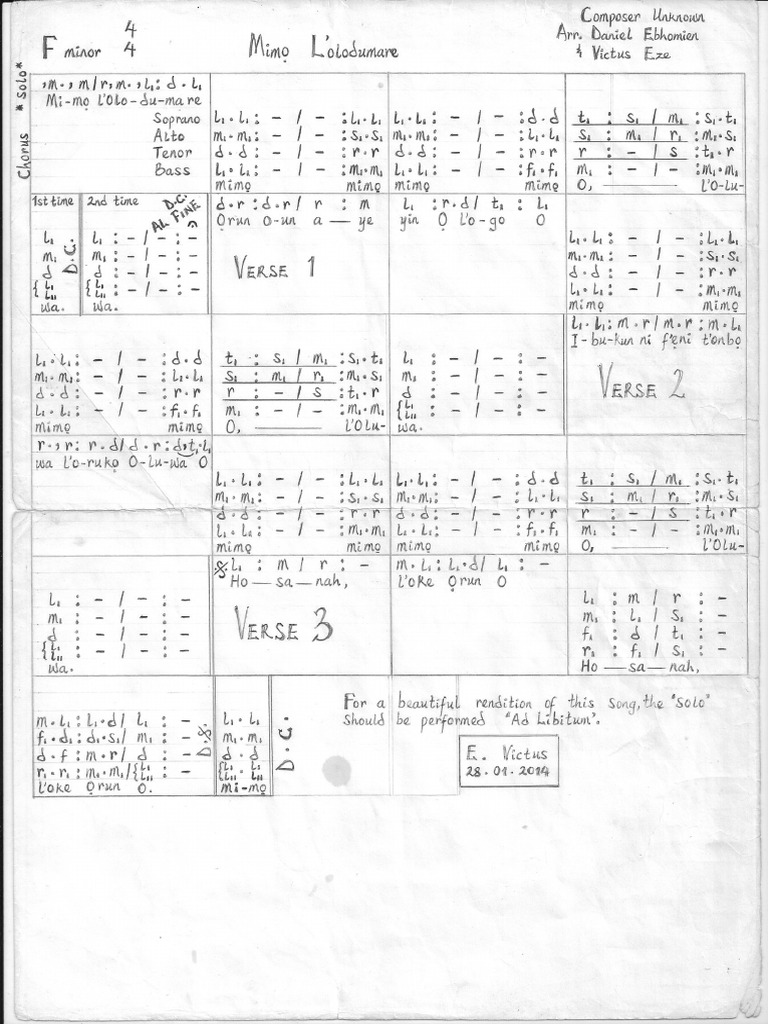 F minor 4 4
Mimọ L'olodumare
Composer Unknown
Arr. Daniel Ebhomien
& Victus Eze
Chorus *solo*
,m.,m/r,m.,l₁:d.l₁
Mi-mọ l'Olo-du-ma-re
Soprano
Alto
Tenor
Bass
l₁.l₁: - / - :l₁.l₁
m₁.m₁: - / - :s₁.s₁
d.d: - / - :r.r
l₁.l₁: - / - :m₁.m₁
mimọ mimọ
l₁.l₁: - / - :d.d
m₁.m₁: - / - :l₁.l₁
d.d: - / - :r.r
l₁.l₁: - / - :f₁.f₁
mimọ mimọ
t₁ : s₁ / m₁ :s₁.t₁
s₁ : m₁ / r₁ :m₁.s₁
r : - / s :t₁.r
m₁ : - / - :m₁.m₁
O, l'O-lu-
1st time
l₁
m₁
d
{l₁
l₁₁
wa.
D.C.
2nd time
D.C. AL FINE
l₁ : - / - : -
m₁ : - / - : -
d : - / - : -
{l₁
l₁₁ : - / - : -
wa.
d.r:d.r/ r : m
Ọrun O-un a — ye
VERSE 1
l₁ :r.d/ t₁ : l₁
yin Ọ l'o-go O
l₁.l₁: - / - :l₁.l₁
m₁.m₁: - / - :s₁.s₁
d.d: - / - :r.r
l₁.l₁: - / - :m₁.m₁
mimọ mimọ
l₁.l₁: - / - :d.d
m₁.m₁: - / - :l₁.l₁
d.d: - / - :r.r
l₁.l₁: - / - :f₁.f₁
mimọ mimọ
t₁ : s₁ / m₁ :s₁.t₁
s₁ : m₁ / r₁ :m₁.s₁
r : - / s :t₁.r
m₁ : - / - :m₁.m₁
O, l'Olu-
l₁ : - / - : -
m₁ : - / - : -
d : - / - : -
{l₁
l₁₁ : - / - : -
wa.
l₁.l₁:m.r/m.r:m.l₁
I-bu-kun ni f'ẹni t'onbọ
VERSE 2
r.,r:r.d/d.r:d,t₁.l₁
wa l'o-rukọ O-lu-wa O
l₁.l₁: - / - :l₁.l₁
m₁.m₁: - / - :s₁.s₁
d.d: - / - :r.r
l₁.l₁: - / - :m₁.m₁
mimọ mimọ
l₁.l₁: - / - :d.d
m₁.m₁: - / - :l₁.l₁
d.d: - / - :r.r
l₁.l₁: - / - :f₁.f₁
mimọ mimọ
t₁ : s₁ / m₁ :s₁.t₁
s₁ : m₁ / r₁ :m₁.s₁
r : - / s :t₁.r
m₁ : - / - :m₁.m₁
O, l'Olu-
l₁ : - / - : -
m₁ : - / - : -
d : - / - : -
{l₁
l₁₁ : - / - : -
wa.
𝄋l₁ : m / r : -
Ho — sa — nah,
VERSE 3
m.l₁:l₁.d/ l₁ : -
l'oke Ọrun O
l₁ : m / r : -
m₁ : l₁ / s₁ : -
f₁ : d / t₁ : -
r₁ : f₁ / s₁ : -
Ho — sa — nah,
m.l₁:l₁.d/ l₁ : -
f₁.d₁:d₁.s₁/ m₁ : -
d.f:m.r/ d : -
r₁.r₁:m₁.m₁/{l₁
l₁₁ : -
l'oke Ọrun O.
D.S.
l₁.l₁
m₁.m₁
d.d
{l₁.l₁
l₁₁.l₁₁
mi-mọ
D.C.
For a beautiful rendition of this song, the "solo"
should be performed "Ad Libitum".
E. Victus
28.01.2014